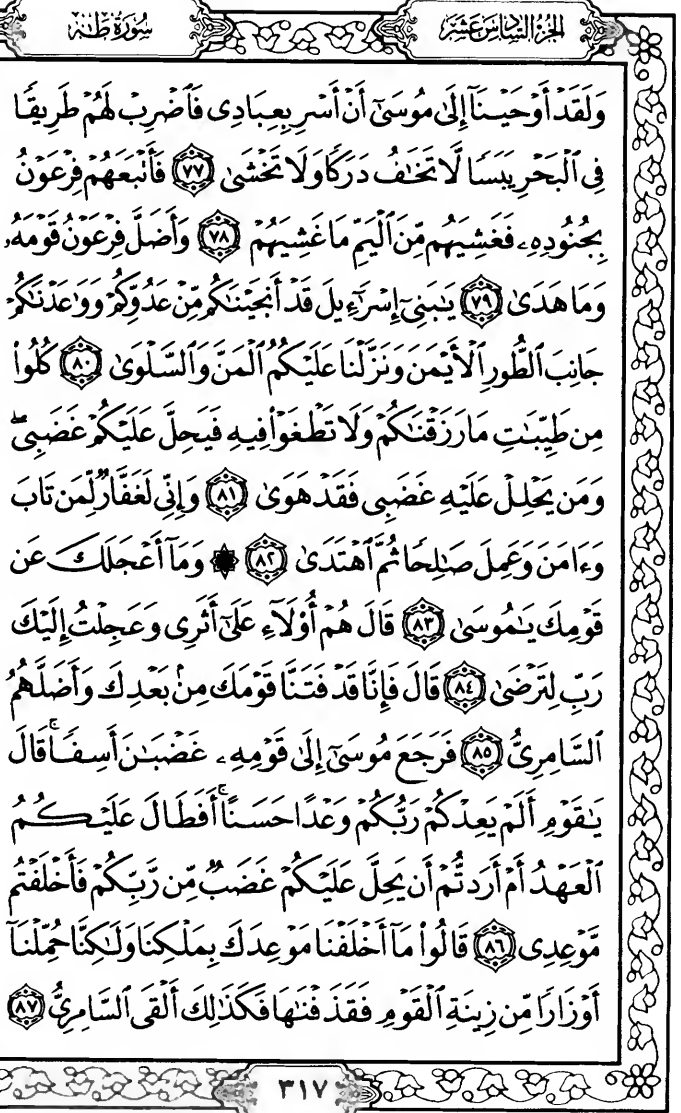 الجزء السادس عشر سورة طه
وَلَقَدْ أَوْحَيْنَآ إِلَىٰ مُوسَىٰٓ أَنْ أَسْرِ بِعِبَادِى فَٱضْرِبْ لَهُمْ طَرِيقًا
فِى ٱلْبَحْرِ يَبَسًا لَّا تَخَٰفُ دَرَكًا وَلَا تَخْشَىٰ ٧٧ فَأَتْبَعَهُمْ فِرْعَوْنُ
بِجُنُودِهِۦ فَغَشِيَهُم مِّنَ ٱلْيَمِّ مَا غَشِيَهُمْ ٧٨ وَأَضَلَّ فِرْعَوْنُ قَوْمَهُۥ
وَمَا هَدَىٰ ٧٩ يَٰبَنِىٓ إِسْرَٰٓءِيلَ قَدْ أَنجَيْنَٰكُم مِّنْ عَدُوِّكُمْ وَوَٰعَدْنَٰكُمْ
جَانِبَ ٱلطُّورِ ٱلْأَيْمَنَ وَنَزَّلْنَا عَلَيْكُمُ ٱلْمَنَّ وَٱلسَّلْوَىٰ ٨٠ كُلُوا۟
مِن طَيِّبَٰتِ مَا رَزَقْنَٰكُمْ وَلَا تَطْغَوْا۟ فِيهِ فَيَحِلَّ عَلَيْكُمْ غَضَبِىۖ
وَمَن يَحْلِلْ عَلَيْهِ غَضَبِى فَقَدْ هَوَىٰ ٨١ وَإِنِّى لَغَفَّارٌ لِّمَن تَابَ
وَءَامَنَ وَعَمِلَ صَٰلِحًا ثُمَّ ٱهْتَدَىٰ ٨٢ ۞ وَمَآ أَعْجَلَكَ عَن
قَوْمِكَ يَٰمُوسَىٰ ٨٣ قَالَ هُمْ أُو۟لَآءِ عَلَىٰٓ أَثَرِى وَعَجِلْتُ إِلَيْكَ
رَبِّ لِتَرْضَىٰ ٨٤ قَالَ فَإِنَّا قَدْ فَتَنَّا قَوْمَكَ مِنۢ بَعْدِكَ وَأَضَلَّهُمُ
ٱلسَّامِرِىُّ ٨٥ فَرَجَعَ مُوسَىٰٓ إِلَىٰ قَوْمِهِۦ غَضْبَٰنَ أَسِفًاۚ قَالَ
يَٰقَوْمِ أَلَمْ يَعِدْكُمْ رَبُّكُمْ وَعْدًا حَسَنًاۚ أَفَطَالَ عَلَيْكُمُ
ٱلْعَهْدُ أَمْ أَرَدتُّمْ أَن يَحِلَّ عَلَيْكُمْ غَضَبٌ مِّن رَّبِّكُمْ فَأَخْلَفْتُم
مَّوْعِدِى ٨٦ قَالُوا۟ مَآ أَخْلَفْنَا مَوْعِدَكَ بِمَلْكِنَا وَلَٰكِنَّا حُمِّلْنَآ
أَوْزَارًا مِّن زِينَةِ ٱلْقَوْمِ فَقَذَفْنَٰهَا فَكَذَٰلِكَ أَلْقَى ٱلسَّامِرِىُّ ٨٧
٣١٧